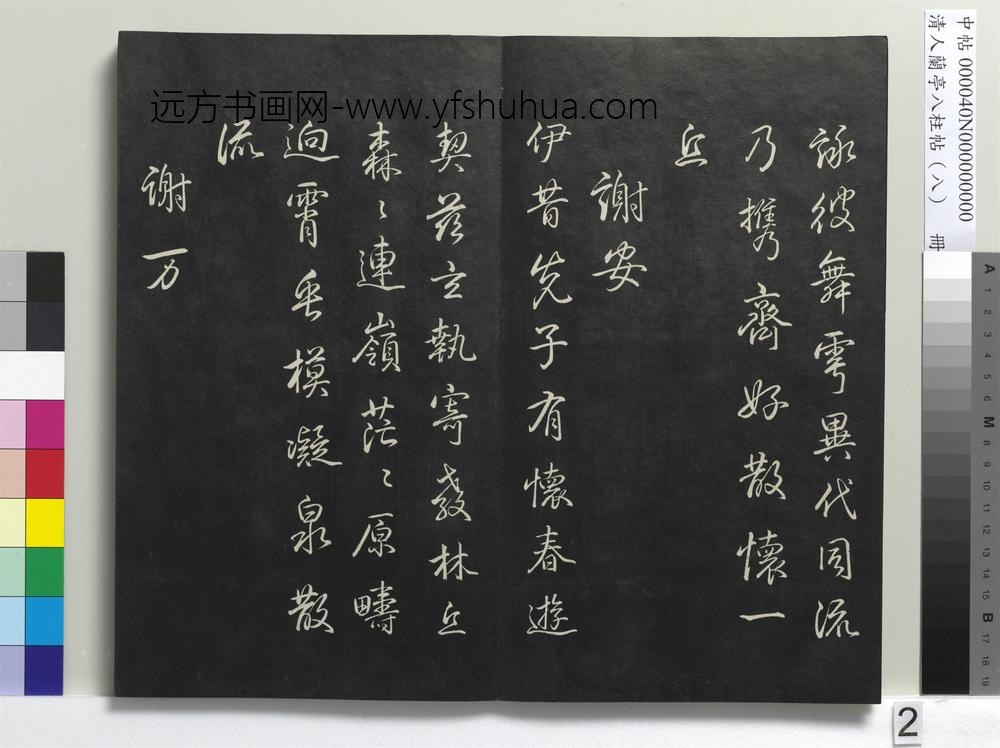 远方书画网-www.yfshuhua.com
詠彼舞雩異代同流
乃携齊好散懷一
丘
謝安
伊昔先子有懷春遊
契茲言執寄敖林丘
森〻連嶺茫〻原疇
迥霄垂模凝泉散
流
謝万
中帖 000040N000000000
清人蘭亭八柱帖（八） 冊
A 1 2 3 4 5 6 M 8 9 10 11 12 13 14 15 B 17 18 19
2